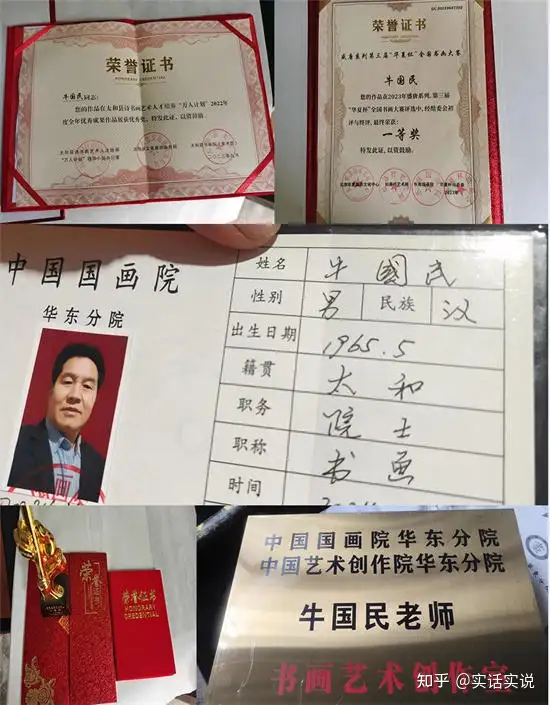 荣誉证书
HONORARY CREDENTIAL
牛国民同志:
您的作品在太和县诗书画艺术人才培养“万人计划”2022年
度全年优秀成果作品展获优秀奖。特发此证,以资鼓励。
荣誉证书
牛国民
您的作品在2023年盛唐系列,第三届
“华夏杯”全国书画大赛评选中,经组委会初
评与终评,最终荣获:
一等奖
特发此证,以资鼓励。
中国国画院
华东分院
姓名 牛國民
性别 男 民族 汉
出生日期 1965.5
籍贯 太和
职务 院士
职称 书画
时间
荣誉证书
荣誉证书
HONORARY
CREDENTIAL
中国国画院华东分院
中国艺术创作院华东分院
牛国民老师
书画艺术创作室
知乎 @实话实说